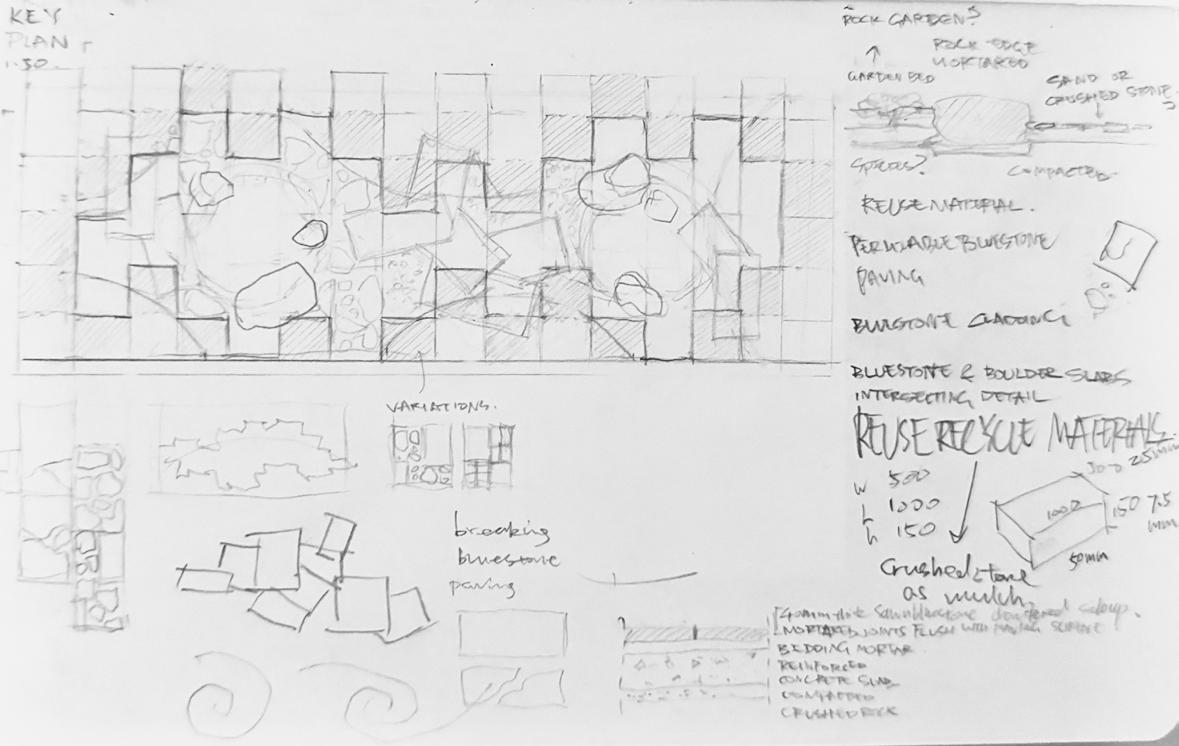 KEY
PLAN
1:50.
ROCK GARDEN?
GARDEN BED
ROCK EDGE
MORTARED
SAND OR
CRUSHED STONE
?
COMPACTED
REUSE MATERIAL.
PERMEABLE BLUESTONE
PAVING
BLUESTONE CLADDING
BLUESTONE & BOULDER SLABS
INTERSECTING DETAIL
REUSE RECYCLE MATERIALS.
W 500
L 1000
h 150
300 25mm
1000
150 7.5
mm
50mm
Crushed stone
as mulch
VARIATIONS.
breaking
bluestone
paving
MORTARED JOINTS FLUSH WITH PAVING SURFACE
BEDDING MORTAR
REINFORCED
CONCRETE SLAB
COMPACTED
CRUSHED ROCK